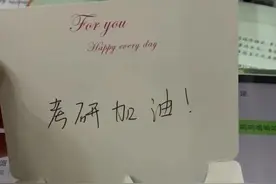 For you
Happy every day
考研加油！